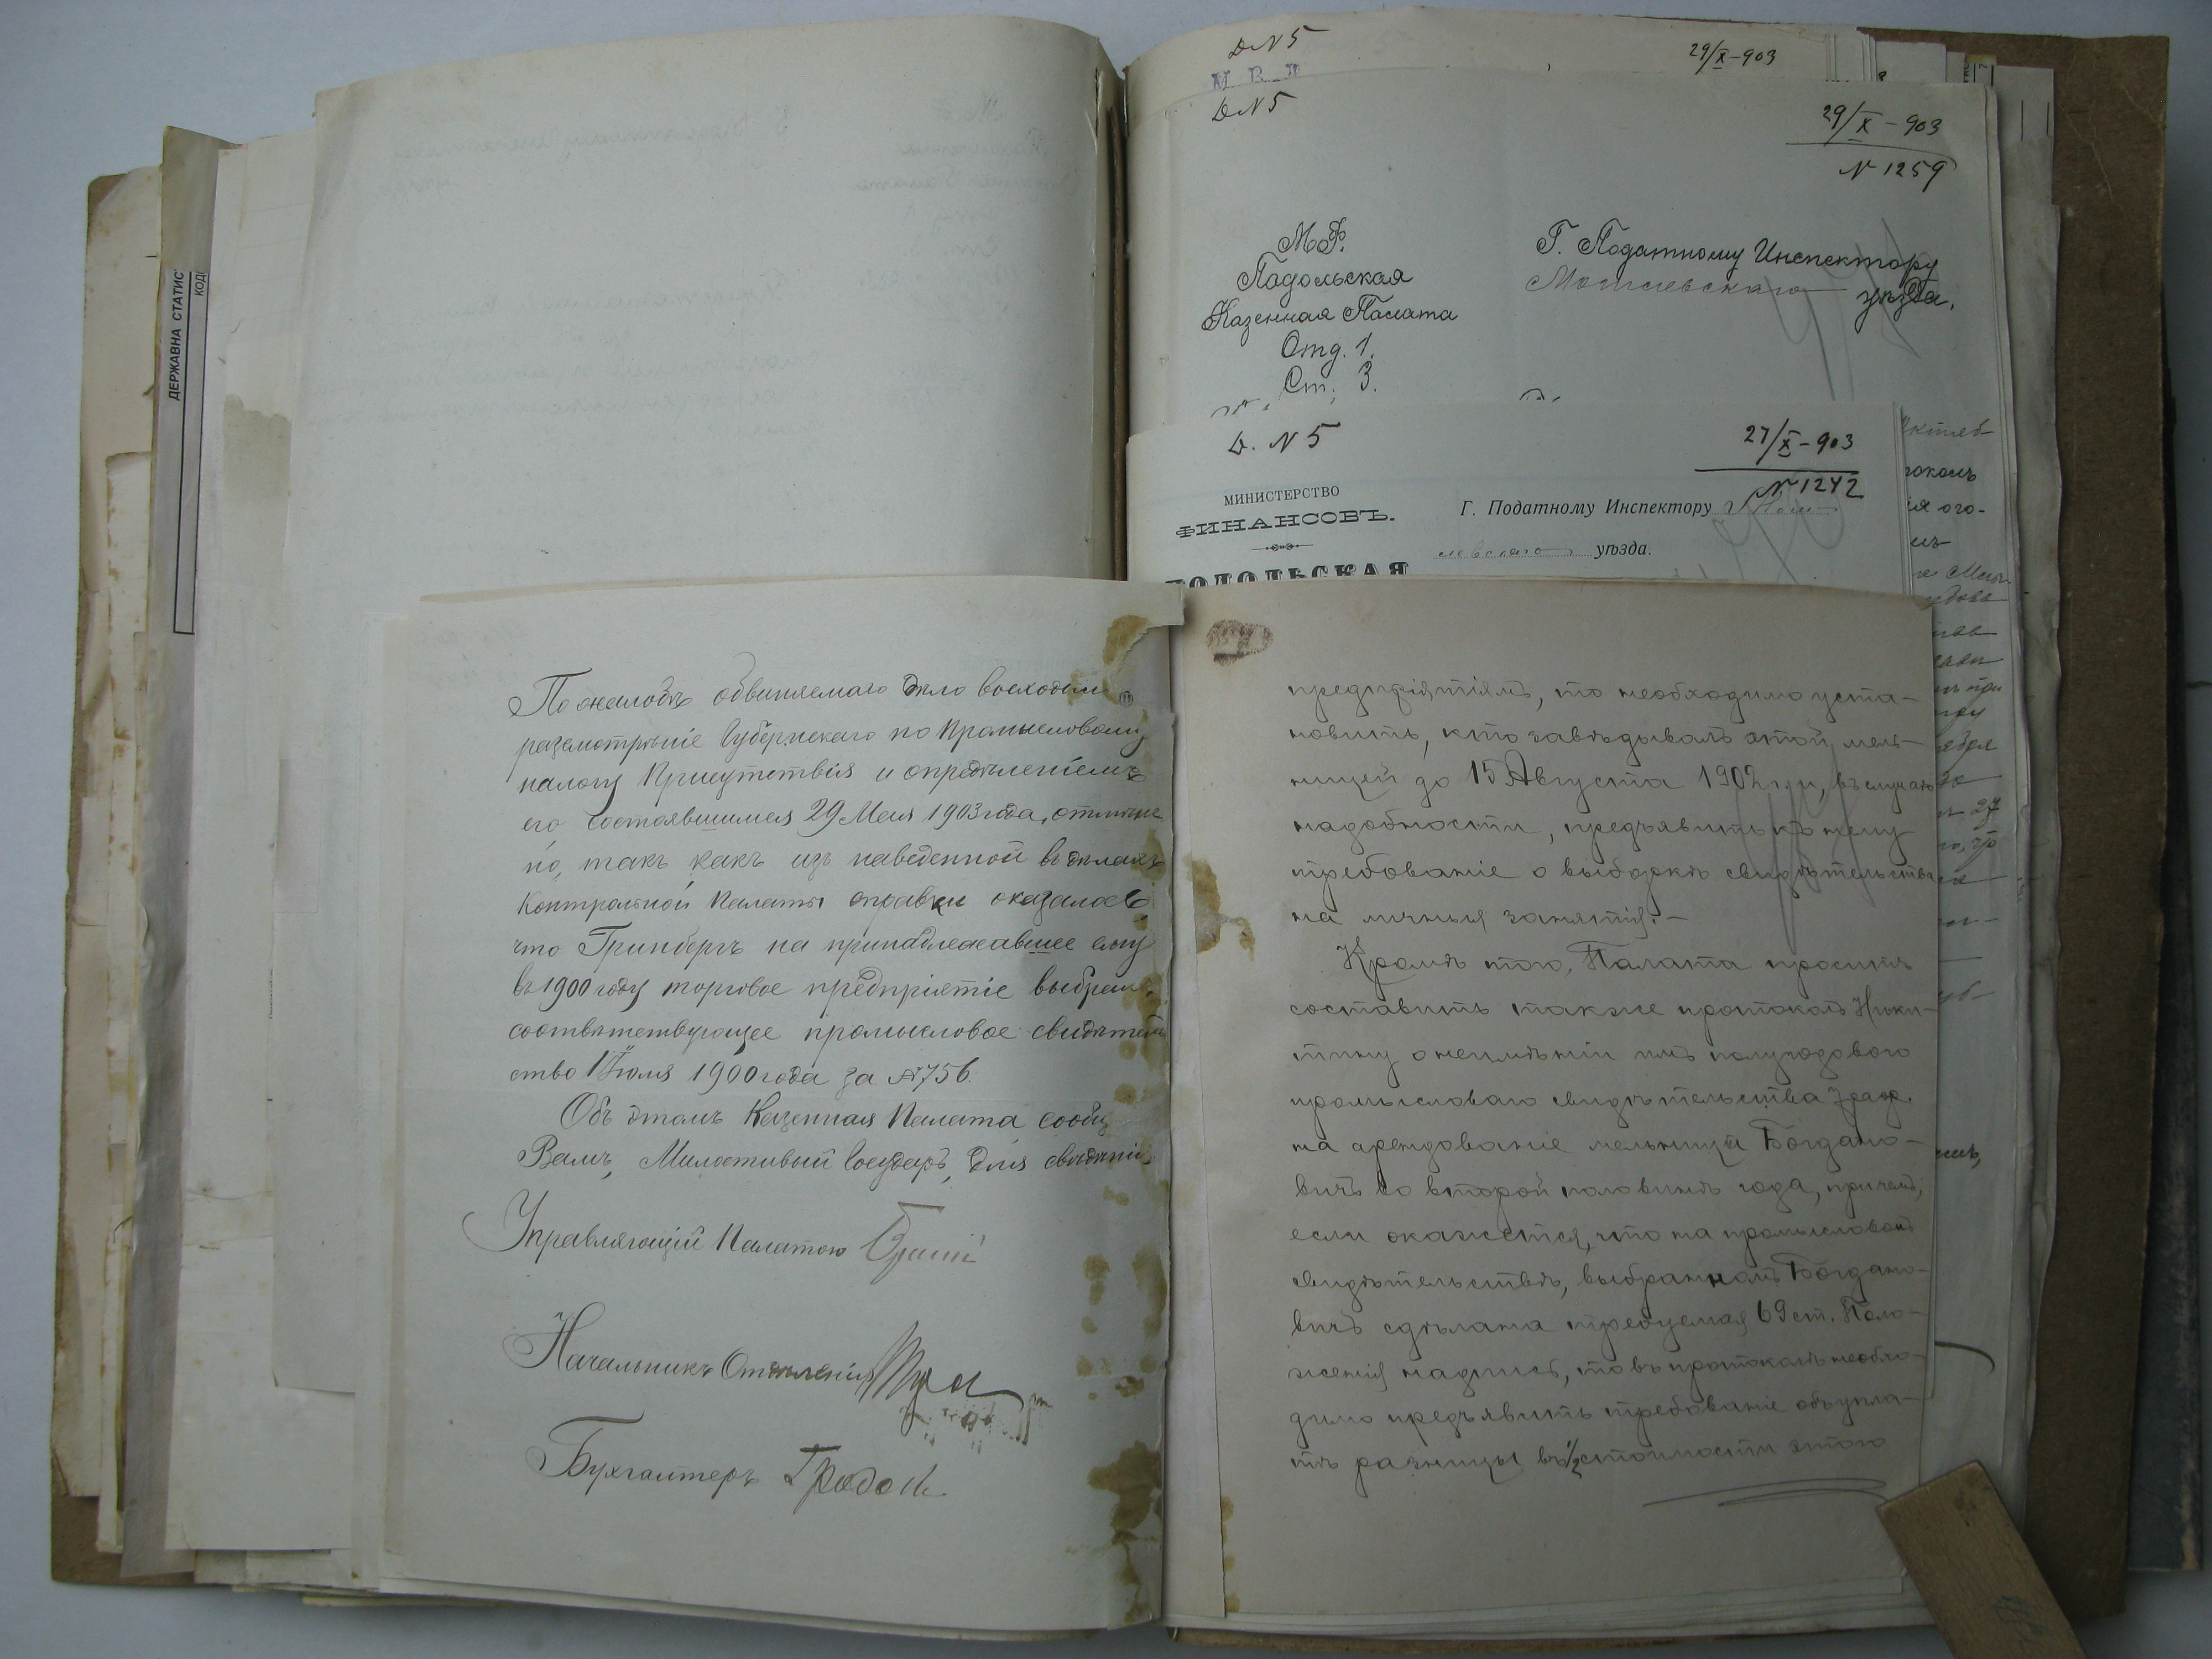 ДЕРЖАВНА СТАТИС
КОД
D N 5
29/X-903
М. В. Д.
D N 5
29/X - 903
N 1259
М.Ф.
Подольская
Казенная Палата
Отд. 1.
Ст. 3.
Г. Податному Инспектору
Могилевскаго уѣзда.
D. N 5
27/X - 903
N 1242
МИНИСТЕРСТВО
ФИНАНСОВЪ.
ПОДОЛЬСКАЯ
Г. Податному Инспектору Моги
левскаго уѣзда.
По жалобѣ обвиняемаго дѣло восходило
разсмотрѣніе Губернскаго по Промысловому
налогу Присутствія и опредѣленіемъ
его состоявшимся 29 Мая 1903 года, отмѣне
но, такъ какъ изъ наведенной въ дѣлахъ
Контрольной Палаты справки оказалось,
что Гринбергъ на принадлежавшее ему
въ 1900 году торговое предпріятіе выбралъ
соотвѣтствующее промысловое свидѣтель
ство 1 Іюля 1900 года за N 756.
Объ этомъ Казенная Палата сообщ
Вамъ, Милостивый Государь, для свѣдѣнія.
Управляющій Палатою
Начальникъ Отдѣленія
Бухгалтеръ
предпріятіямъ, то необходимо уста-
новить, кто завѣдывалъ этой мель-
ницей до 15 Августа 1902 г. и, въ случаѣ
надобности, предъявить къ нему
требованіе о выборкѣ свидѣтельства
на личныя занятія.-
Кромѣ того, Палата проситъ
составить также протоколъ Ники-
тину о неимѣніи имъ полугодового
промысловаго свидѣтельства 3 разр.
на арендованіе мельницы Богдано-
вичъ во второй половинѣ года, причемъ,
если окажется, что на промысловомъ
свидѣтельствѣ, выбранномъ Богдано-
вичъ сдѣлана требуемая 69 ст. Поло-
женія надпись, то въ протоколѣ необхо-
димо предъявить требованіе объ упла-
тѣ разницы въ 1/2 стоимости этого